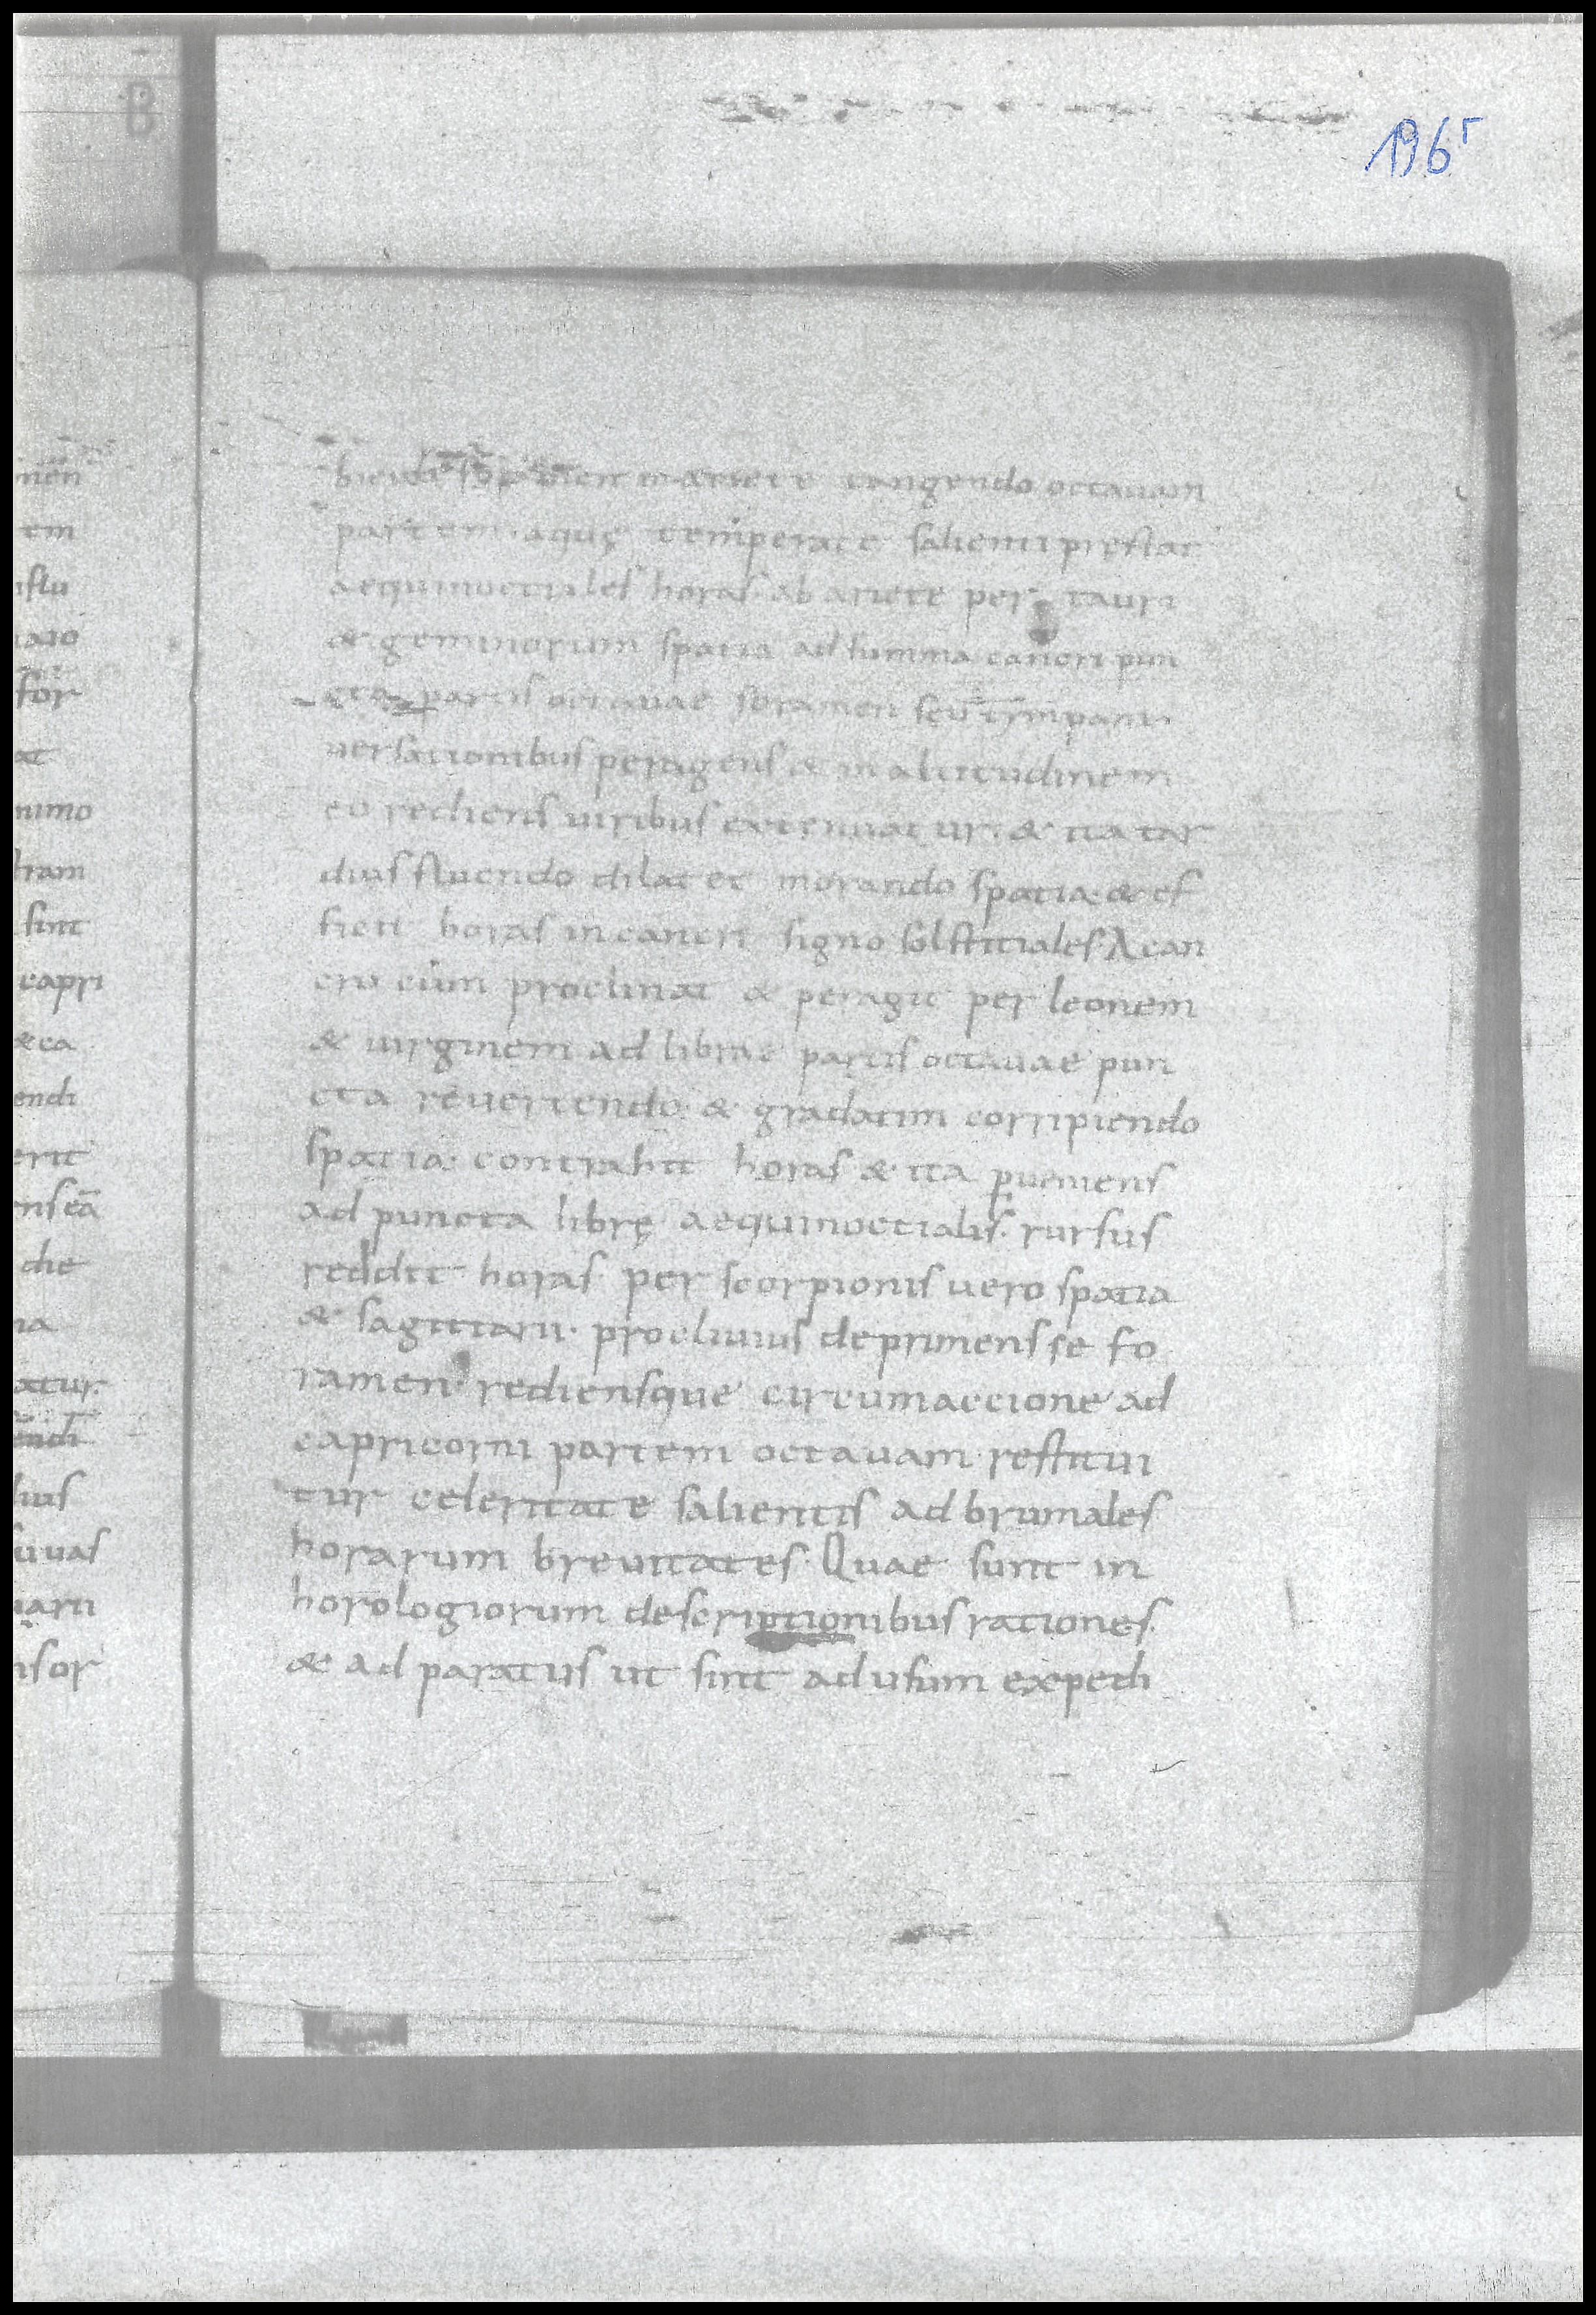 B
196r
men
tem
istu
for
at
nimo
tram
sint
capri
& ea
endi
erit
ensēā
die
na
atur.
endi
lius
suuas
narii
nsor
in ariete tangendo octauam
partem. aquę temperate salienti pręstat
aequinoctiales horas. ab ariete per tauri
& geminorum spatia ad summa cancri pun
cta partis octauae foramen seu tympani
uersationibus peragens & in altitudinem
eo rediens uiribus extenuatur. & ita tar
dius fluendo dilatet morando spatia. & ef
ficit horas in cancri signo solstitiales. A can
cro cum proclinat & peragit per leonem
& uirginem ad librae partis octauae pun
cta reuertendo. & gradatim corripiendo
spatia. contrahit horas & ita ꝑueniens
ad puncta librę aequinoctialis. rursus
reddit horas per scorpionis uero spatia
& sagittarii. procliuius deprimens se fo
ramen rediensque circumaccione ad
capricorni partem octauam restitui
tur celeritate salientis ad brumales
horarum breuitates. Quae sunt in
horologiorum descriptionibus rationes.
& ad paratus ut sint ad usum expedi